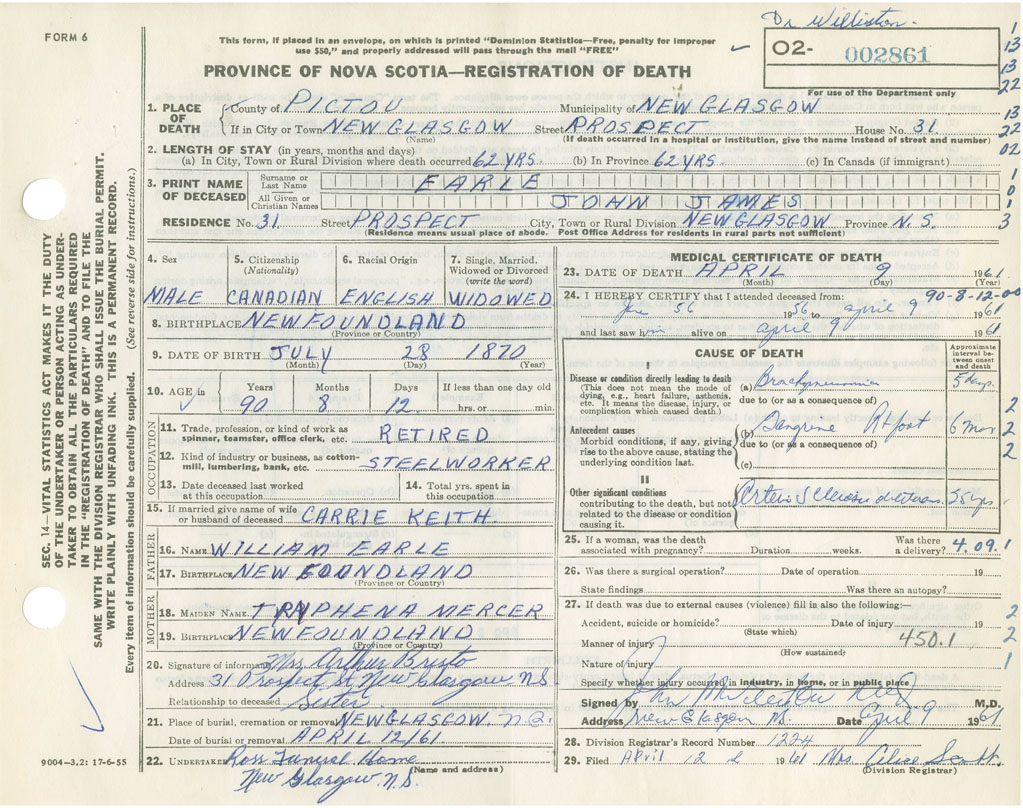 Dr Williston.
FORM 6
This form, if placed in an envelope, on which is printed "Dominion Statistics—Free, penalty for improper
use $50," and properly addressed will pass through the mail "FREE"
02- 002861
For use of the Department only
PROVINCE OF NOVA SCOTIA—REGISTRATION OF DEATH
1
13
13
22
13
22
02
1
0
1
3
1. PLACE OF DEATH
County of PICTOU Municipality of NEW GLASGOW
If in City or Town NEW GLASGOW Street PROSPECT House No. 31
(Name) (If death occurred in a hospital or institution, give the name instead of street and number)
2. LENGTH OF STAY (in years, months and days)
(a) In City, Town or Rural Division where death occurred 62 YRS. (b) In Province 62 YRS. (c) In Canada (if immigrant)
3. PRINT NAME OF DECEASED
Surname or Last Name EARLE
All Given or Christian Names JOHN JAMES
RESIDENCE No. 31. Street PROSPECT City, Town or Rural Division NEW GLASGOW Province N.S.
(Residence means usual place of abode. Post Office Address for residents in rural parts not sufficient)
SEC. 14—VITAL STATISTICS ACT MAKES IT THE DUTY
OF THE UNDERTAKER OR PERSON ACTING AS UNDER-
TAKER TO OBTAIN ALL THE PARTICULARS REQUIRED
IN THE "REGISTRATION OF DEATH" AND TO FILE THE
SAME WITH THE DIVISION REGISTRAR WHO SHALL ISSUE THE BURIAL PERMIT.
WRITE PLAINLY WITH UNFADING INK. THIS IS A PERMANENT RECORD.
Every item of information should be carefully supplied. (See reverse side for instructions.)
4. Sex
MALE
5. Citizenship
(Nationality)
CANADIAN
6. Racial Origin
ENGLISH
7. Single, Married,
Widowed or Divorced
(write the word)
WIDOWED
8. BIRTHPLACE NEWFOUNDLAND
(Province or Country)
9. DATE OF BIRTH JULY 28 1870
(Month) (Day) (Year)
10. AGE in Years Months Days If less than one day old
90 8 12. hrs. or min.
OCCUPATION
11. Trade, profession, or kind of work as
spinner, teamster, office clerk, etc. RETIRED
12. Kind of industry or business, as cotton-
mill, lumbering, bank, etc. STEELWORKER
13. Date deceased last worked
at this occupation
14. Total yrs. spent in
this occupation
15. If married give name of wife
or husband of deceased CARRIE KEITH.
FATHER
16. NAME WILLIAM EARLE
17. BIRTHPLACE NEW FOUNDLAND
(Province or Country)
MOTHER
18. MAIDEN NAME TRYPHENA MERCER
19. BIRTHPLACE NEWFOUNDLAND
(Province or Country)
20. Signature of informant Mrs. Arthur Bristo
Address 31 Prospect St. New Glasgow N.S
Relationship to deceased Sister
21. Place of burial, cremation or removal NEW GLASGOW, N.S.
Date of burial or removal APRIL 12/61.
22. UNDERTAKER Ross Funeral Home
New Glasgow N.S.
(Name and address)
9004-3.2: 17-6-55
MEDICAL CERTIFICATE OF DEATH
23. DATE OF DEATH APRIL 9 1961
(Month) (Day) (Year)
90-8-12-00
24. I HEREBY CERTIFY that I attended deceased from:
56 1956 to April 9 1961
and last saw him alive on April 9 1961
CAUSE OF DEATH
Approximate interval between onset and death
I
Disease or condition directly leading to death
(This does not mean the mode of
dying, e.g., heart failure, asthenia,
etc. It means the disease, injury, or
complication which caused death.)
(a) Bronchopneumonia 5 days
due to (or as a consequence of)
Antecedent causes
Morbid conditions, if any, giving
rise to the above cause, stating the
underlying condition last.
(b) Gangrene Rt foot 6 mos
due to (or as a consequence of)
(c)
II
Other significant conditions
contributing to the death, but not
related to the disease or condition
causing it.
Arterio Sclerosis
2
2
2
25. If a woman, was the death
associated with pregnancy? Duration weeks. Was there a delivery? 4.09.1
26. Was there a surgical operation? Date of operation 19
State findings Was there an autopsy?
27. If death was due to external causes (violence) fill in also the following:—
Accident, suicide or homicide? Date of injury 19
(State which)
Manner of injury 450.1
(How sustained)
Nature of injury
2
2
1
Specify whether injury occurred in industry, in home, or in public place
Signed by M.D.
Address New Glasgow N.S. Date April 9 1961
28. Division Registrar's Record Number 1224
29. Filed April 12 1961 Mrs. Alice Scott.
(Division Registrar)